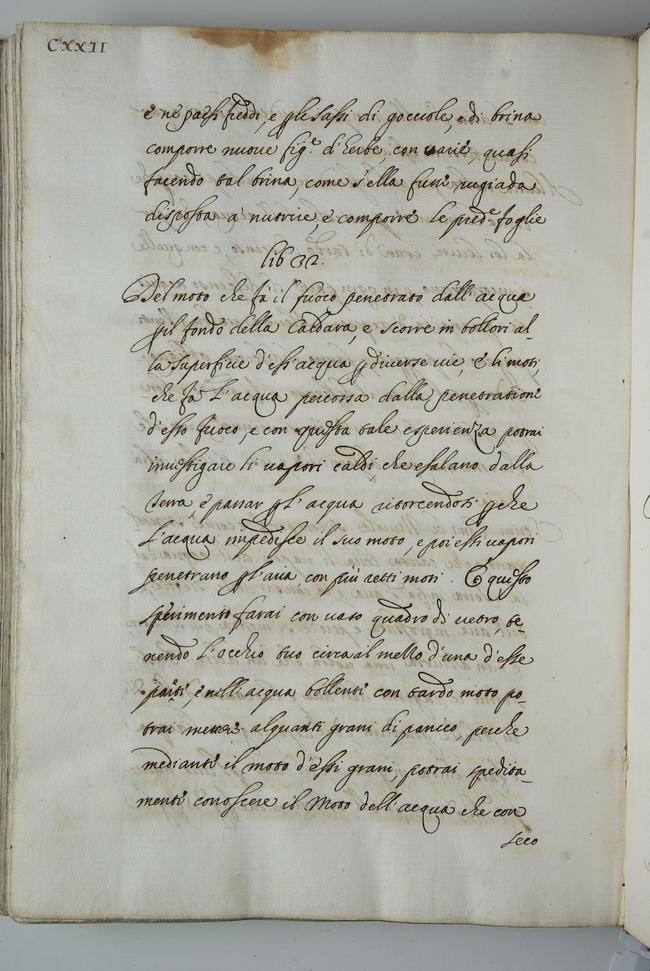 CXXII
è ne paesi freddi, e p le sassi di goccuole, e di brina
comporre nuove fig.e d'Erbe, con varie quasi
facendo tal brina, come s'ella fussi rugiada
disposta à nutrire, è comporre le pred.e foglie
lib 32.
Del moto che fà il fuoco penetrato dall'acqua
p il fondo della Caldara, e scorre in bollori al-
la superficie d'ess'acqua p diverse vie è li moti,
che fà L'acqua percorsa dalla penetratione
d'esso fuoco, e con questa tale esperienza potrai
investigare li vapori caldi che esalano dalla
terra è passar p L'acqua ritorcendosi p che
L'acqua impedisce il suo moto, e poi essi vapori
penetrano p l'aria, con più retti moti. E questo
sperimento farai con vaso quadro di vetro, te-
nendo L'occhio tuo circa al mezzo d'una d'esse
pariti, è nell'acqua bollente con tardo moto po-
trai mettere alquanti grani di panico, perche
mediante il moto d'essi grani, potrai spedita-
mente conoscere il Moto dell'acqua che con
seco